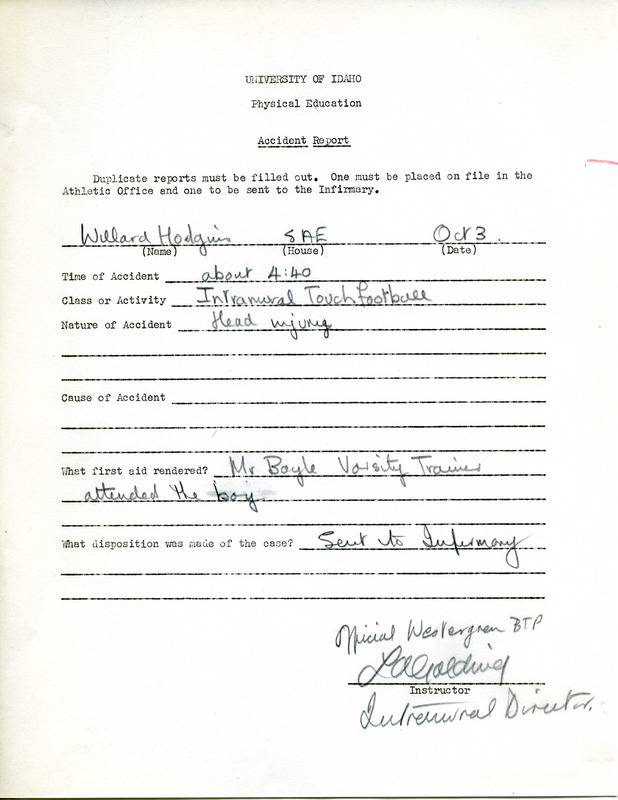 UNIVERSITY OF IDAHO
Physical Education
Accident Report
Duplicate reports must be filled out. One must be placed on file in the
Athletic Office and one to be sent to the Infirmary.
Willard Hodgins SAE Oct 3.
(Name) (House) (Date)
Time of Accident about 4:40
Class or Activity Intramural Touch football
Nature of Accident Head injury
Cause of Accident
What first aid rendered? Mr Boyle Varsity Trainer
attended the boy.
What disposition was made of the case? Sent to Infermary
Official Westergren BTP
Golding
Instructor
Intramural Director.